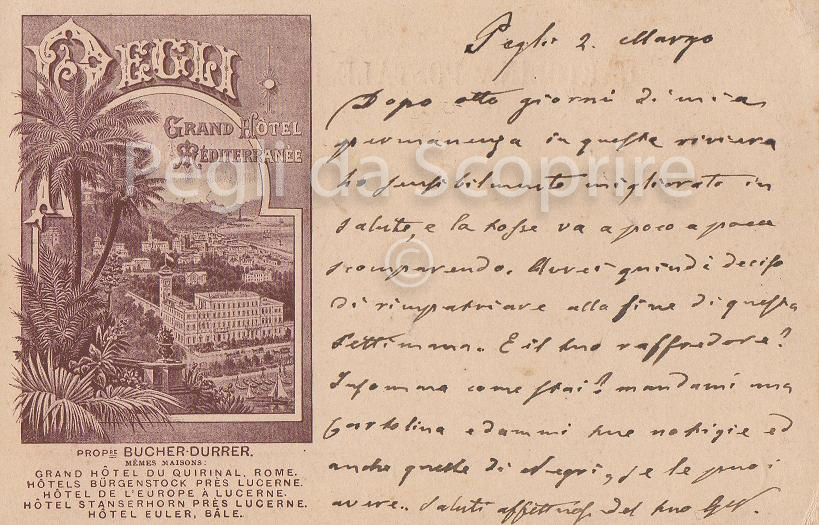 PEGLI
GRAND HÔTEL
MÉDITERRANÉE
PROPRE BUCHER-DURRER.
MÊMES MAISONS:
GRAND HÔTEL DU QUIRINAL, ROME.
HÔTELS BÜRGENSTOCK PRÈS LUCERNE.
HÔTEL DE L'EUROPE À LUCERNE.
HÔTEL STANSERHORN PRÈS LUCERNE.
HÔTEL EULER, BÂLE.
Pegli 2. Marzo
Dopo otto giorni di mia
permanenza in questa riviera
ho sensibilmente migliorato in
salute, e la tosse va a poco a poco
scomparendo. Avrei quindi deciso
di rimpatriare alla fine di questa
settimana. E il tuo raffredore?
Insomma come stai? mandami una
Cartolina e dammi tue notizie ed
anche quelle di Negri, se le puoi
avere. Saluti affettuosi del tuo
Pegli da Scoprire
©